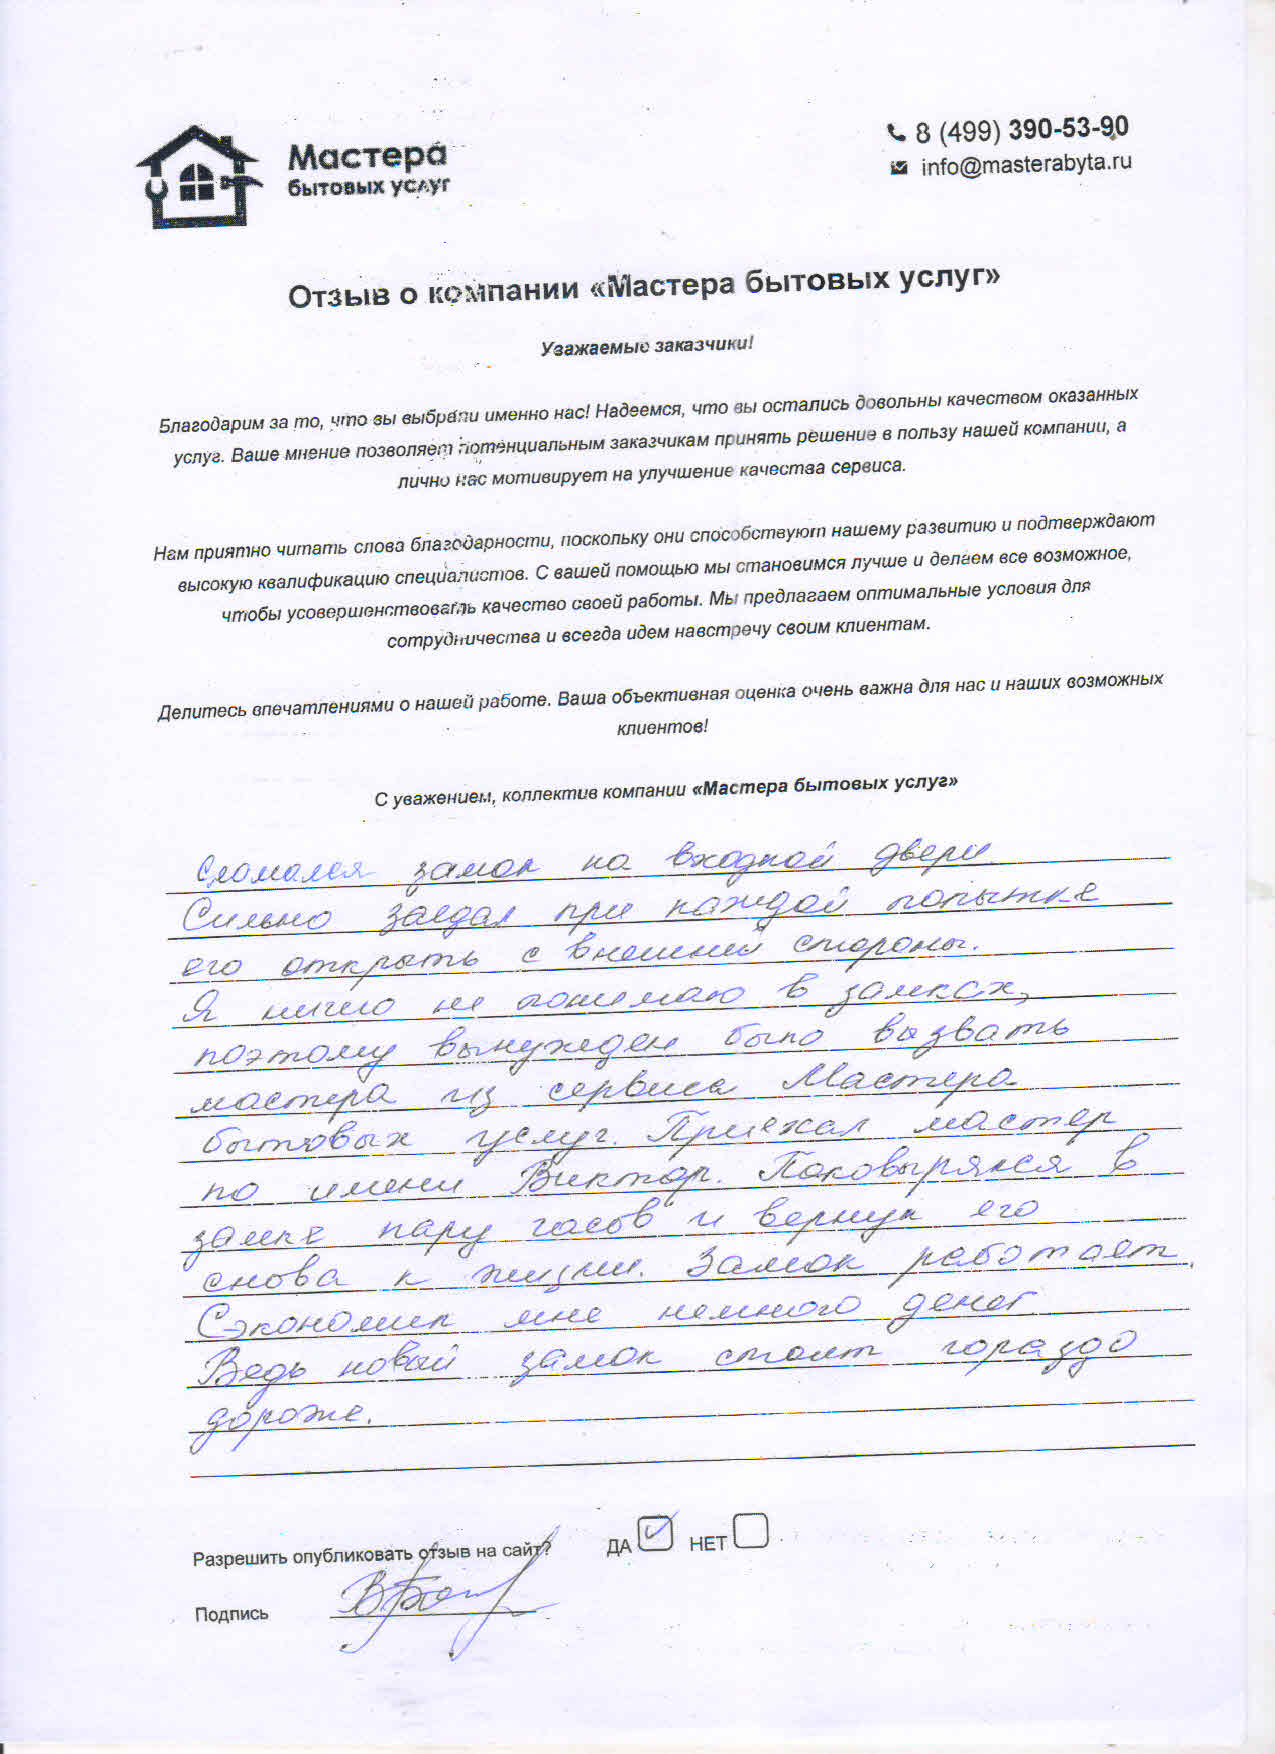 Мастера
бытовых услуг
8 (499) 390-53-90
info@masterabyta.ru
Отзыв о компании «Мастера бытовых услуг»
Уважаемые заказчики!
Благодарим за то, что вы выбрали именно нас! Надеемся, что вы остались довольны качеством оказанных
услуг. Ваше мнение позволяет потенциальным заказчикам принять решение в пользу нашей компании, а
лично нас мотивирует на улучшение качества сервиса.
Нам приятно читать слова благодарности, поскольку они способствуют нашему развитию и подтверждают
высокую квалификацию специалистов. С вашей помощью мы становимся лучше и делаем все возможное,
чтобы усовершенствовать качество своей работы. Мы предлагаем оптимальные условия для
сотрудничества и всегда идем навстречу своим клиентам.
Делитесь впечатлениями о нашей работе. Ваша объективная оценка очень важна для нас и наших возможных
клиентов!
С уважением, коллектив компании «Мастера бытовых услуг»
Сломался замок на входной двери
Сильно заедал при каждой попытке
его открыть с внешней стороны.
Я ничего не понимаю в замках,
поэтому вынужден было вызвать
мастера из сервиса Мастера
бытовых услуг. Приехал мастер
по имени Виктор. Поковырялся в
замке пару часов и вернул его
снова к жизни. Замок работает.
Сэкономил мне немного денег.
Ведь новый замок стоит гораздо
дороже.
Разрешить опубликовать отзыв на сайт? ДА НЕТ
Подпись